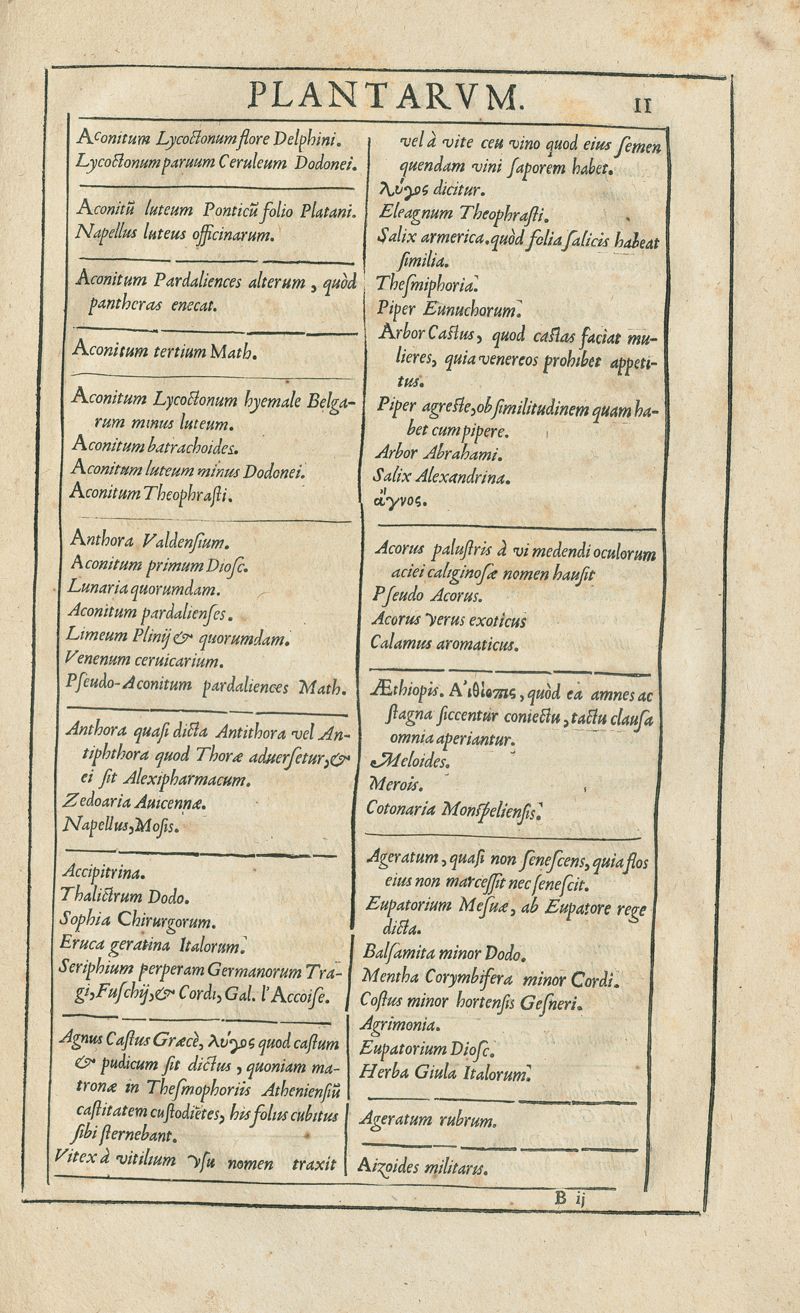 PLANTARVM.
11
Aconitum Lycoctonum flore Delphini.
Lycoctonum paruum Ceruleum Dodonei.
Aconitū luteum Ponticū folio Platani.
Napellus luteus officinarum.
Aconitum Pardaliences alterum, quòd
pantheras enecat.
Aconitum tertium Math.
Aconitum Lycoctonum hyemale Belga-
rum minus luteum.
Aconitum batrachoides.
Aconitum luteum minus Dodonei.
Aconitum Theophraſti.
Anthora Valdenſium.
Aconitum primum Dioſc.
Lunaria quorumdam.
Aconitum pardalienſes.
Limeum Plinij & quorumdam.
Venenum ceruicarium.
Pſeudo-Aconitum pardaliences Math.
Anthora quaſi dicta Antithora vel An-
tiphthora quod Thoræ aduerſetur, &
ei ſit Alexipharmacum.
Zedoaria Auicennæ.
Napellus, Moſis.
Accipitrina.
Thalictrum Dodo.
Sophia Chirurgorum.
Eruca geratina Italorum.
Seriphium perperam Germanorum Tra-
gi, Fuſchij, & Cordi, Gal. l'Accoiſe.
Agnus Caſtus Græcè, λύγος quod caſtum
& pudicum ſit dictus, quoniam ma-
tronæ in Theſmophoriis Athenienſiū
caſtitatem cuſtodiētes, his folus cubitus
ſibi ſternebant.
Vitex à vitilium vſu nomen traxit
vel à vite ceu vino quod eius ſemen
quendam vini ſaporem habet.
λύγος dicitur.
Eleagnum Theophraſti.
Salix armerica. quòd folia ſalicis habeat
ſimilia.
Theſmiphoria.
Piper Eunuchorum.
Arbor Caſtus, quod caſtas faciat mu-
lieres, quia venereos prohibet appeti-
tus.
Piper agreſte, ob ſimilitudinem quam ha-
bet cum pipere.
Arbor Abrahami.
Salix Alexandrina.
ἄγνος.
Acorus paluſtris à vi medendi oculorum
aciei caliginoſæ nomen hauſit
Pſeudo Acorus.
Acorus verus exoticus
Calamus aromaticus.
Æthiopis. Α'ιθίοπις, quòd ea amnes ac
ſtagna ſiccentur coniectu, tactu clauſa
omnia aperiantur.
Meloides.
Merois.
Cotonaria Monſpelienſis.
Ageratum, quaſi non ſeneſcens, quia flos
eius non marceſſit nec ſeneſcit.
Eupatorium Meſuæ, ab Eupatore rege
dicta.
Balſamita minor Dodo.
Mentha Corymbifera minor Cordi.
Coſtus minor hortenſis Geſneri.
Agrimonia.
Eupatorium Dioſc.
Herba Giula Italorum.
Ageratum rubrum.
Aizoides militaris.
B ij